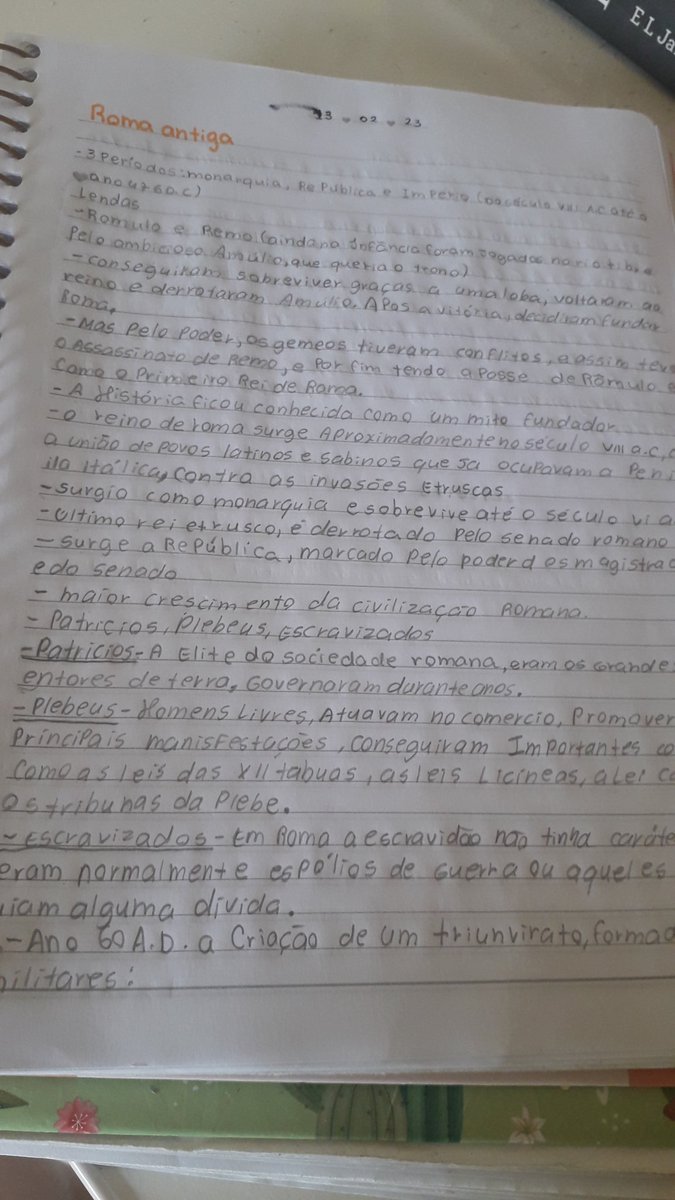 EL Ja
13 02 23
Roma antiga
-3 Períodos: monarquia, República e Império (do século VIII A.C até o
ano 476 D.C)
Lendas
-Romulo e Remo (ainda na infância foram jogados no rio tibre
Pelo ambicioso Amulio, que queria o trono)
-conseguiram sobreviver graças a uma loba, voltaram ao
reino e derrotaram Amulio. Apos a vitória, decidiram fundar
Roma,
-Mas pelo poder, os gemeos tiveram conflitos, e assim teve
o Assassinato de Remo, e por fim tendo a posse de Rômulo
como o Primeiro Rei de Roma.
-A História ficou conhecida como um mito fundador
-o reino de roma surge Aproximadamente no século VIII a.c,
a união de povos latinos e sabinos que ja ocupavam a Pení
la Itálica, contra as invasões Etruscas
-surgio como monarquia e sobrevive até o século VI a
-Último rei etrusco, é derrotado pelo senado romano
-surge a República, marcado pelo poder dos magistrad
e do senado
-maior crescimento da civilização Romana.
-Patricios, Plebeus, Escravizados
-Patricios-A Elite da sociedade romana, eram os Grandes
entores de terra, Governaram durante anos.
-Plebeus-Homens Livres, Atuavam no comercio, Promover
Principais manisfestações, conseguiram Importantes co
como as leis das XII tabuas, as leis Licineas, a lei c
os tribunas da Plebe.
-Escravizados-Em Roma a escravidão não tinha caráte
eram normalmente espólios de Guerra ou aqueles
uiam alguma divida.
-Ano 60 A.D. a Criação de um triunvirato, formad
ilitares: